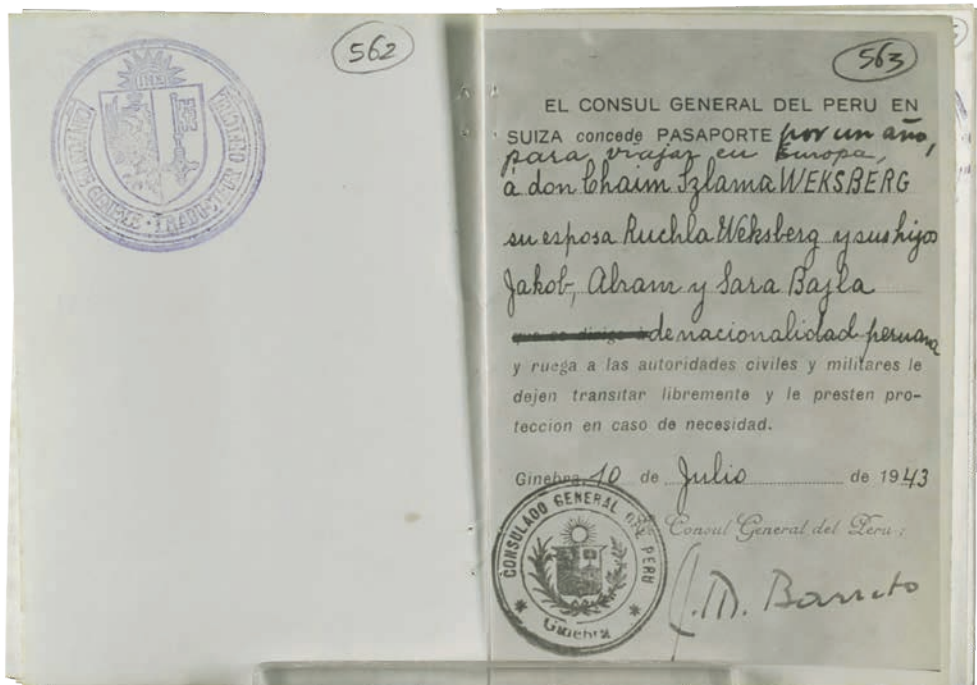 562
CANTON DE GENÈVE · TRADUCTEUR
563
EL CONSUL GENERAL DEL PERU EN
SUIZA concede PASAPORTE por un año,
para viajar en Europa,
á don Chaim Szlama WEKSBERG
su esposa Ruchla Weksberg y sus hijos
Jakob, Abram y Sara Bajla
que se dirige á de nacionalidad peruana
y ruega a las autoridades civiles y militares le
dejen transitar libremente y le presten pro-
teccion en caso de necesidad.
Ginebra, 10 de Julio de 1943
CONSULADO GENERAL DEL PERU
Ginebra
Consul General del Peru:
J.M. Barreto